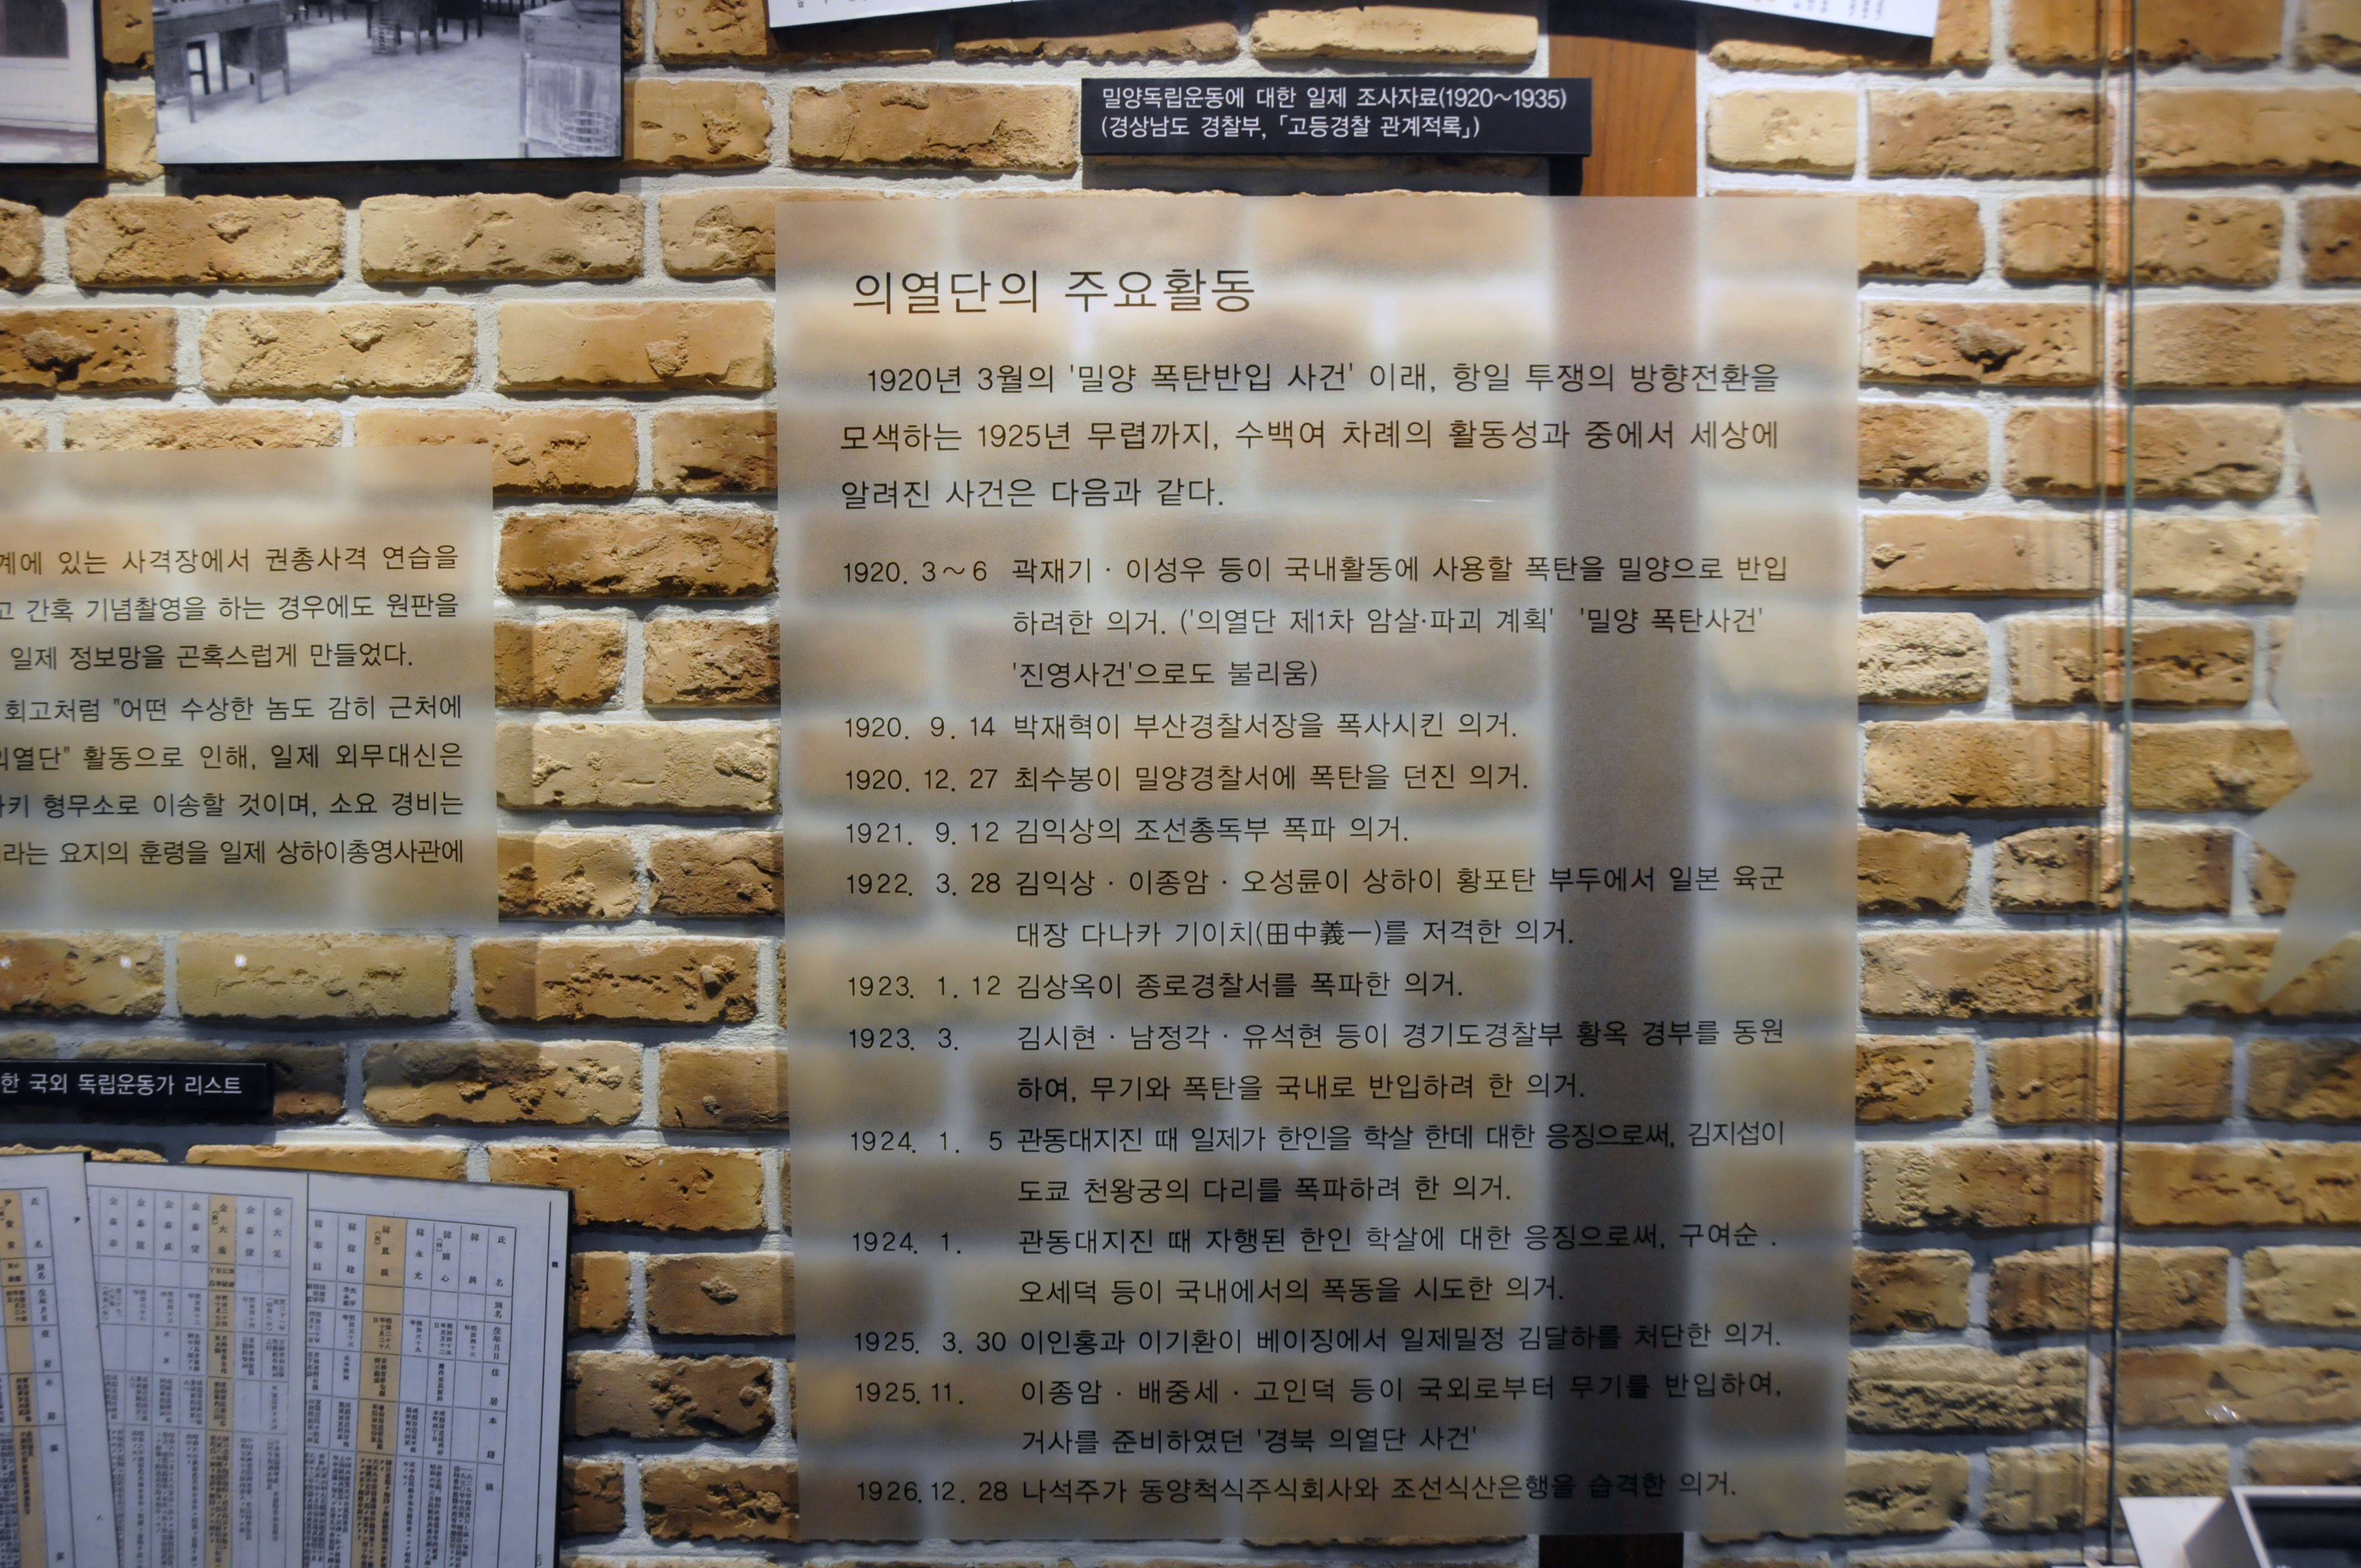 밀양독립운동에 대한 일제 조사자료(1920～1935)
(경상남도 경찰부, 「고등경찰 관계적록」)
의열단의 주요활동
1920년 3월의 '밀양 폭탄반입 사건' 이래, 항일 투쟁의 방향전환을
모색하는 1925년 무렵까지, 수백여 차례의 활동성과 중에서 세상에
알려진 사건은 다음과 같다.
1920. 3～6 곽재기 · 이성우 등이 국내활동에 사용할 폭탄을 밀양으로 반입
하려한 의거. ('의열단 제1차 암살·파괴 계획' '밀양 폭탄사건'
'진영사건'으로도 불리움)
1920. 9. 14 박재혁이 부산경찰서장을 폭사시킨 의거.
1920. 12. 27 최수봉이 밀양경찰서에 폭탄을 던진 의거.
1921. 9. 12 김익상의 조선총독부 폭파 의거.
1922. 3. 28 김익상 · 이종암 · 오성륜이 상하이 황포탄 부두에서 일본 육군
대장 다나카 기이치(田中義一)를 저격한 의거.
1923. 1. 12 김상옥이 종로경찰서를 폭파한 의거.
1923. 3. 김시현 · 남정각 · 유석현 등이 경기도경찰부 황옥 경부를 동원
하여, 무기와 폭탄을 국내로 반입하려 한 의거.
1924. 1. 5 관동대지진 때 일제가 한인을 학살 한데 대한 응징으로써, 김지섭이
도쿄 천왕궁의 다리를 폭파하려 한 의거.
1924. 1. 관동대지진 때 자행된 한인 학살에 대한 응징으로써, 구여순 .
오세덕 등이 국내에서의 폭동을 시도한 의거.
1925. 3. 30 이인홍과 이기환이 베이징에서 일제밀정 김달하를 처단한 의거.
1925. 11. 이종암 · 배중세 · 고인덕 등이 국외로부터 무기를 반입하여,
거사를 준비하였던 '경북 의열단 사건'
1926. 12. 28 나석주가 동양척식주식회사와 조선식산은행을 습격한 의거.
계에 있는 사격장에서 권총사격 연습을
고 간혹 기념촬영을 하는 경우에도 원판을
일제 정보망을 곤혹스럽게 만들었다.
회고처럼 "어떤 수상한 놈도 감히 근처에
의열단" 활동으로 인해, 일제 외무대신은
키 형무소로 이송할 것이며, 소요 경비는
라는 요지의 훈령을 일제 상하이총영사관에
한 국외 독립운동가 리스트